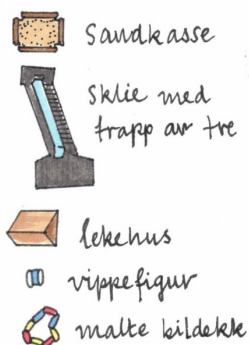 Sandkasse
Sklie med
trapp av tre
lekehus
vippefigur
malte bildekk